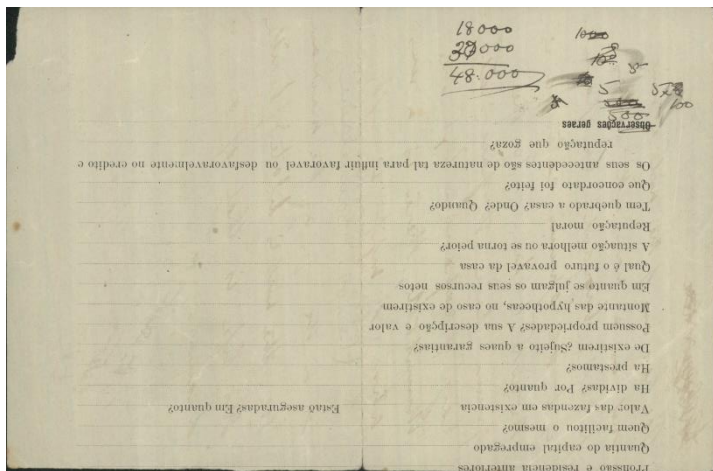 Profissão e residencia anteriores
Quantia do capital empregado
Quem facilitou o mesmo?
Valor das fazendas em existencia Estaõ aseguradas? Em quanto?
Ha dividas? Por quanto?
Ha prestamos?
De existirem ¿Sujeito a quaes garantias?
Possuem propriedades? A sua descripção e valor
Montante das hypothecas, no caso de existirem
Em quanto se julgam os seus recursos netos
Qual é o futuro provavel da casa
A situação melhora ou se torna peior?
Reputação moral
Tem quebrado a casa? Onde? Quando?
Que concordato foi feito?
Os seus antecedentes são de natureza tal para influir favoravel ou desfavoravelmente no credito e
reputação que goza?
Observações geraes
18000
30000
48.000
1000
5
100
500